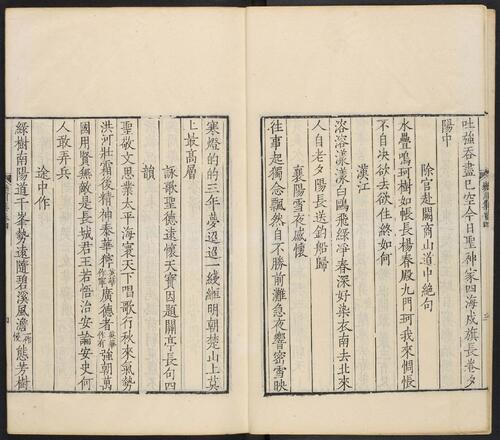 吐強吞盡已空今日聖神家四海戍旗長卷夕
陽中
除官赴闕商山道中絶句
水疊鳴珂樹如帳長楊春殿九門珂我來惆悵
不自决欲去欲住終如何
漢江
溶溶漾漾白鷗飛綠淨春深好染衣南去北來
人自老夕陽長送釣船歸
襄陽雪夜感懷
往事起獨念飄然自不勝前灘急夜響密雪映
寒燈的的三年夢迢迢一綫緪明朝楚山上莫
上最高層
詠歌聖德遠懷天寳因題關亭長句四
韻
聖敬文思業太平海寰天下唱歌行秋來氣勢
洪河壯霜後精神泰華獰廣德者強朝萬
國用賢無敵是長城君王若悟治安論安史何
人敢弄兵
途中作
綠樹南陽道千峯勢遠隨碧溪風澹態芳樹